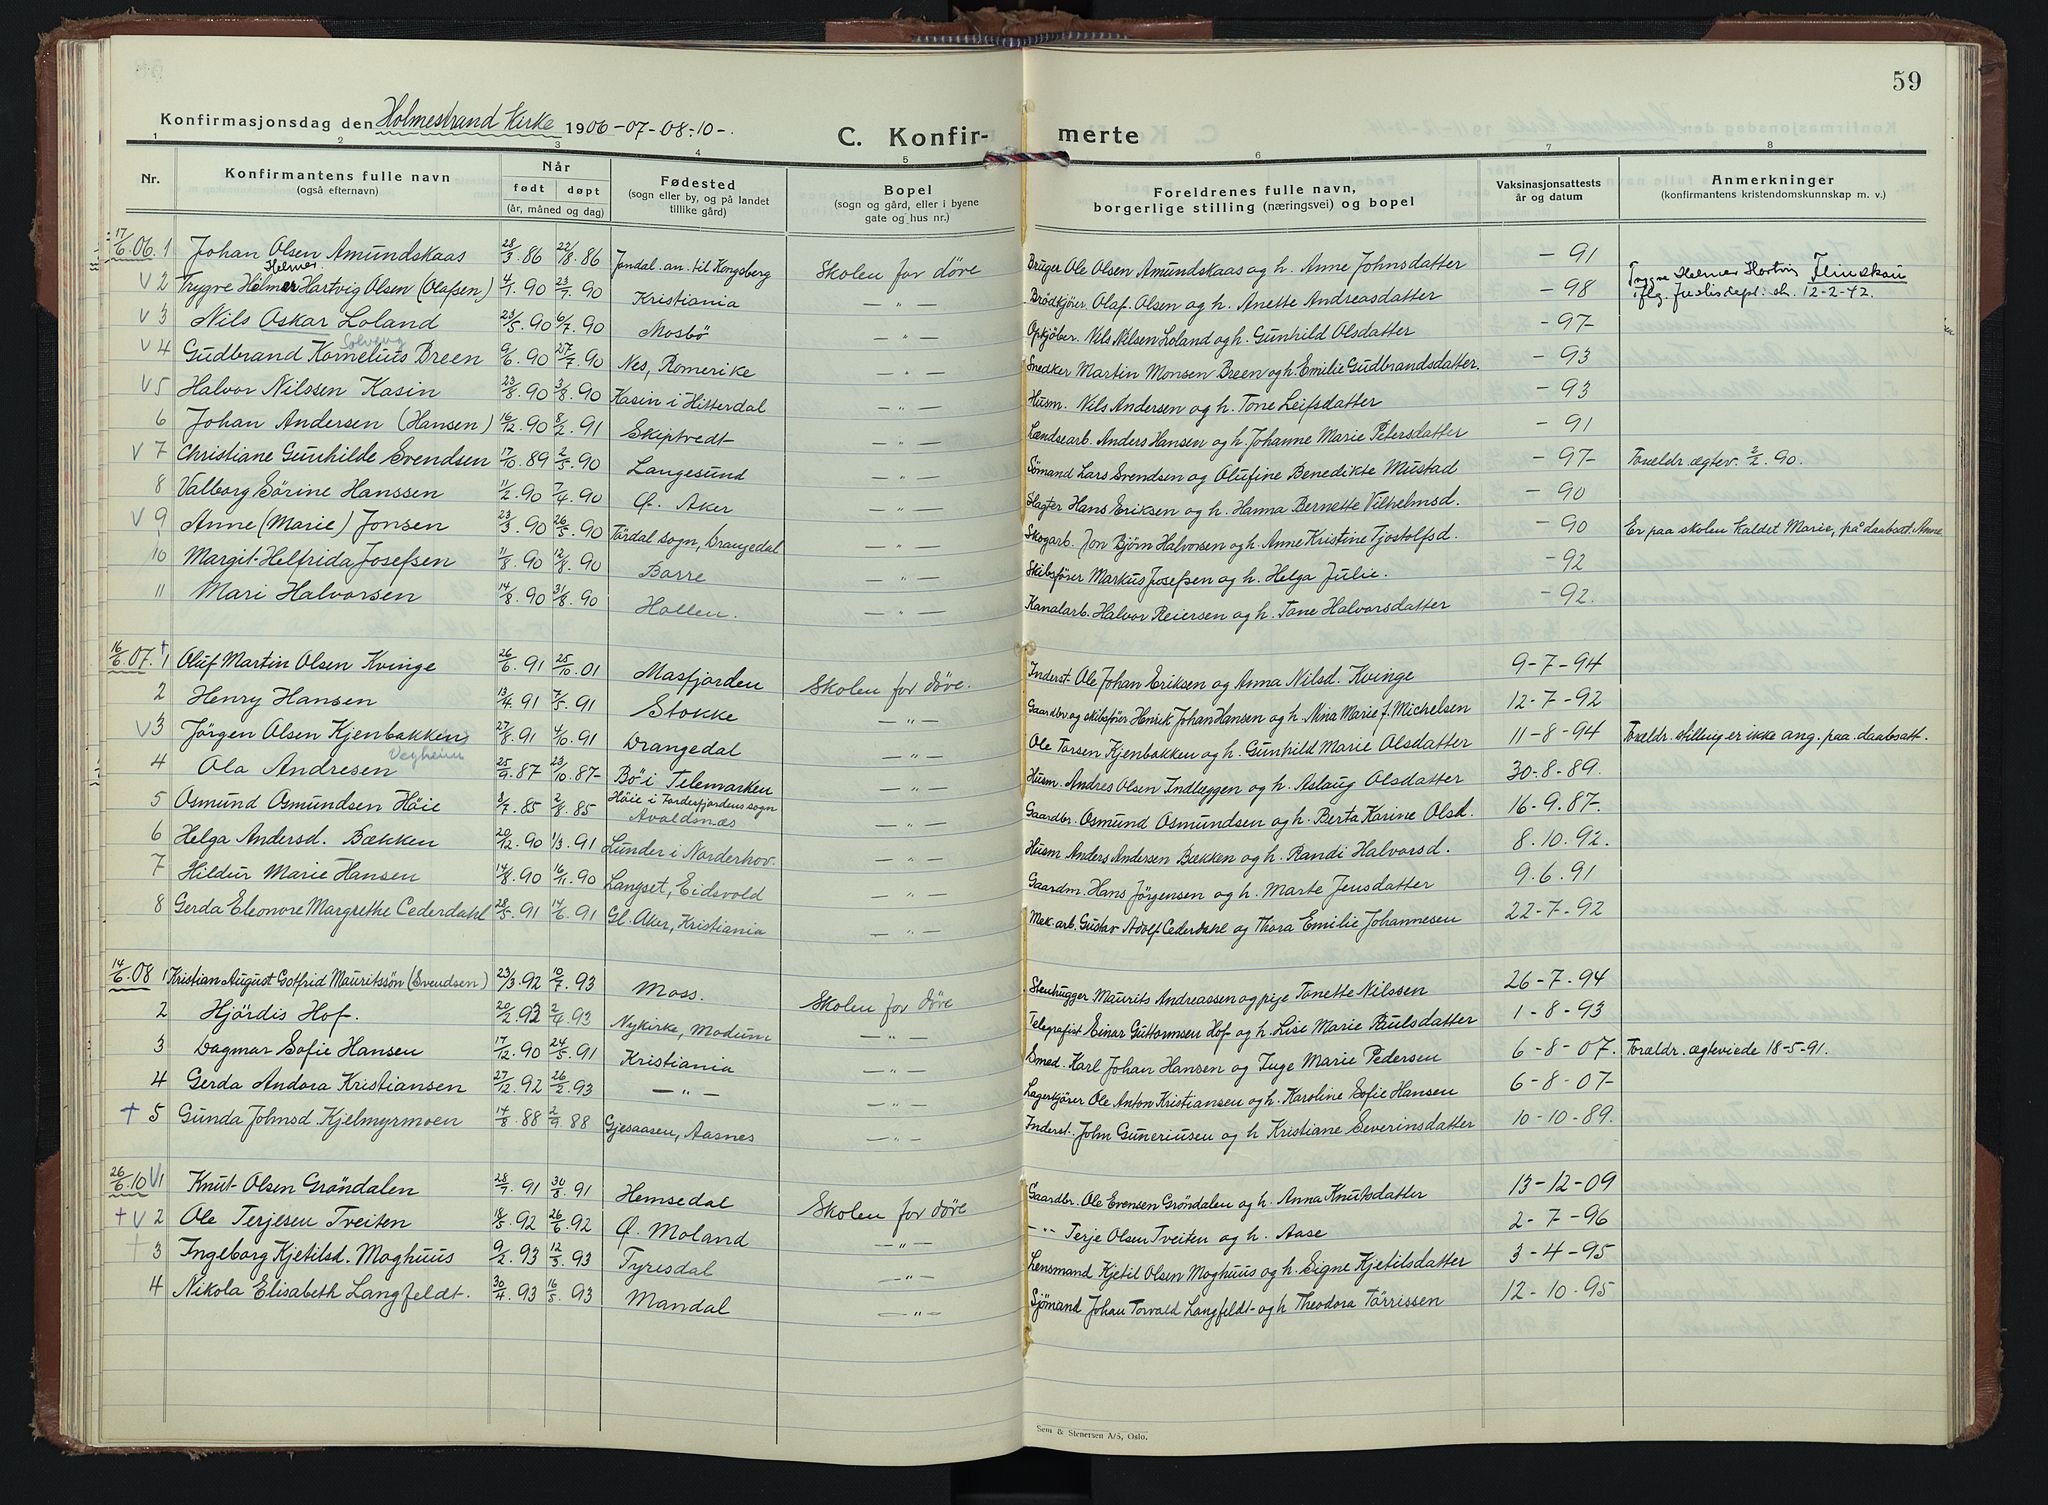 59
Konfirmasjonsdag den Holmestrand Kirke 1906-07-08-10-. C. Konfir- merte
1 2 3 4 5 6 7 8
Nr. Konfirmantens fulle navn (også efternavn) Når født døpt (år, måned og dag) Fødested (sogn eller by, og på landet tillike gård) Bopel (sogn og gård, eller i byene gate og hus nr.) Foreldrenes fulle navn, borgerlige stilling (næringsvei) og bopel Vaksinasjonsattests år og datum Anmerkninger (konfirmantens kristendomskunnskap m. v.)
17/6.06. 1 Johan Olsen Amundskaas 28/3.86 22/8.86 Jondal. an. til Kongsberg Skolen for døve Bruger Ole Olsen Amundskaas og h. Anne Johnsdatter - 91
Helmer
V 2 Trygve Helmer Hartvig Olsen (Olafsen) 4/7.90 23/7.90 Kristiania -"- Brödkjører. Olaf. Olsen og h. Anette Andreasdatter - 98 Trygve Helmer Hartvig Flinskau iflg. Justisdept. sk. 12-2-42.
V 3 Nils Oskar Loland 23/5.90 6/7.90 Mosbö -"- Opkjøber. Nils Nilsen Loland og h. Gunhild Olsdatter - 97-
Solvang
V 4 Gudbrand Kornelius Breen 9/6.90 27/7.90 Nes, Romerike -"- Snedker Martin Monsen Breen og h. Emilie Gudbrandsdatter. - 93
V 5 Halvor Nilssen Kasin 23/8.90 3/8.90 Kasin i Hitterdal -"- Husm. Nils Andersen og h. Tone Leifsdatter - 93
6 Johan Andersen (Hansen) 16/12.90 8/2.91 Skiptvedt -"- Lændsearb. Anders Hansen og h. Johanne Marie Petersdatter - 91
V 7 Christiane Gunhilde Svendsen 17/10.89 2/5.90 Langesund -"- Sömand Lars Svendsen og Olufine Benedikte Mustad - 97- Foreldr. ægtev. 2/2.90.
8 Valborg Sörine Hanssen 11/2.90 7/4.90 Ø. Aker -"- Slagter Hans Eriksen og h. Hanna Bernette Vilhelmsd. - 90
V 9 Anne (Marie) Jonsen 23/3.90 26/5.90 Tördal sogn, Drangedal -"- Skogarb. Jon Bjørn Halvorsen og h. Anne Kristine Tjostolfsd. - 90 Er paa skolen kaldet Marie, på daabsat. Anne
10 Margit Helfrida Josefsen 11/8.90 12/8.90 Borre -"- Skibsfører Markus Josefsen og h. Helga Julie. - 92
11 Mari Halvorsen 14/8.90 31/8.90 Hollen. -"- Kanalarb. Halvor Reiersen og h. Tone Halvorsdatter - 92.
16/6.07. † 1 Oluf Martin Olsen Kvinge 26/6.91 25/10.01 Masfjorden Skolen for døve. Inderst. Ole Johan Eriksen og Anna Nilsd. Kvinge 9-7-94
2 Henry Hansen 13/4.91 7/5.91 Stokke -"- Gaardbr. og skibsfør. Henrik Johan Hansen og h. Nina Marie f. Michelsen 12-7-92
V 3 Jørgen Olsen Kjenbakken 27/8.91 4/10.91 Drangedal -"- Ole Torsen Kjenbakken og h. Gunhild Marie Olsdatter 11-8-94 Foreldr. stilling er ikke ang. paa. daabsatt.
Vegheim
4 Ola Andresen 25/9.87 23/10.87- Bö i Telemarken -"- Husm. Andres Olsen Indlæggen og h. Aslaug Olsdatter 30-8-89.
5 Osmund Osmundsen Höie 3/7.85 2/8.85 Höie i Tordesfjordens sogn Avaldsnæs -"- Gaardbr. Osmund Osmundsen og h. Berta Karine Olsd. 16-9.87-
6 Helga Andersd. Bækken 20/12.90 1/3.91 Lunder i Norderhov. -"- Husm Anders Andersen Bækken og h. Randi Halvorsd. 8.10.92.
7 Hildur Marie Hansen 14/8.90 16/11.90 Langset, Eidsvold -"- Gaardm. Hans Jörgensen og h. Marte Jensdatter 9.6.91
8 Gerda Eleonore Margrethe Cederdahl 28/5.91 14/6.91 Gl. Aker, Kristiania -"- Mek. arb. Gustav Adolf Cederdahl og Thora Emilie Johannesen 22-7-92
14/6.08 1 Kristian August Gotfrid Mauritssön (Svendsen) 23/3.92 10/7.93 Moss. Skolen for døve Stenhugger Maurits Andreassen og pije Tonette Nilssen 26-7.94
2 Hjördis Hof. 20/2.93 2/4.93 Nykirke, Modum -"- Telegrafist Einar Guttormsen Hof og h. Lise Marie Paulsdatter 1-8-93
3 Dagmar Sofie Hansen 17/12.90 24/5.91 Kristiania -"- Smed. Karl Johan Hansen og Inge Marie Pedersen 6-8-07. Foreldr. ægteviede 18-5-91.
4 Gerda Andora Kristiansen 27/12.92 26/2.93 -"- -"- Lagerkjører Ole Anton Kristiansen og h. Karoline Sofie Hansen 6-8-07-
† 5 Gunda Johnsd. Kjelmyrmoen 14/8.88 2/9.88 Gjesaasen, Aasnes -"- Inderst. John Guneriusen og h Kristiane Severinsdatter 10-10-89.
26/6.10 V 1 Knut Olsen Gröndalen 28/7.91 30/8.91 Hemsedal Skolen for døve Gaardbr. Ole Evensen Gröndalen og h. Anna Knutsdatter 13-12-09
† V 2 Ole Terjesen Tveiten 18/5.92 26/6.92 Ø. Moland -"- -"- Terje Olsen Tveiten og h. Aase 2-7-96
† 3 Ingeborg Kjetilsd. Moghuus 9/2.93 12/3.93 Tyrisdal -"- Lensmand Kjetil Olsen Moghuus og h. Signe Kjetilsdatter 3-4-95
4 Nikola Elisabeth Langfeldt. 30/4.93 16/5.93 Mandal -"- Sjömand Johan Torvald Langfeldt og h Theodora Törrissen 12-10-95
Sem & Stenersen A/S, Oslo.